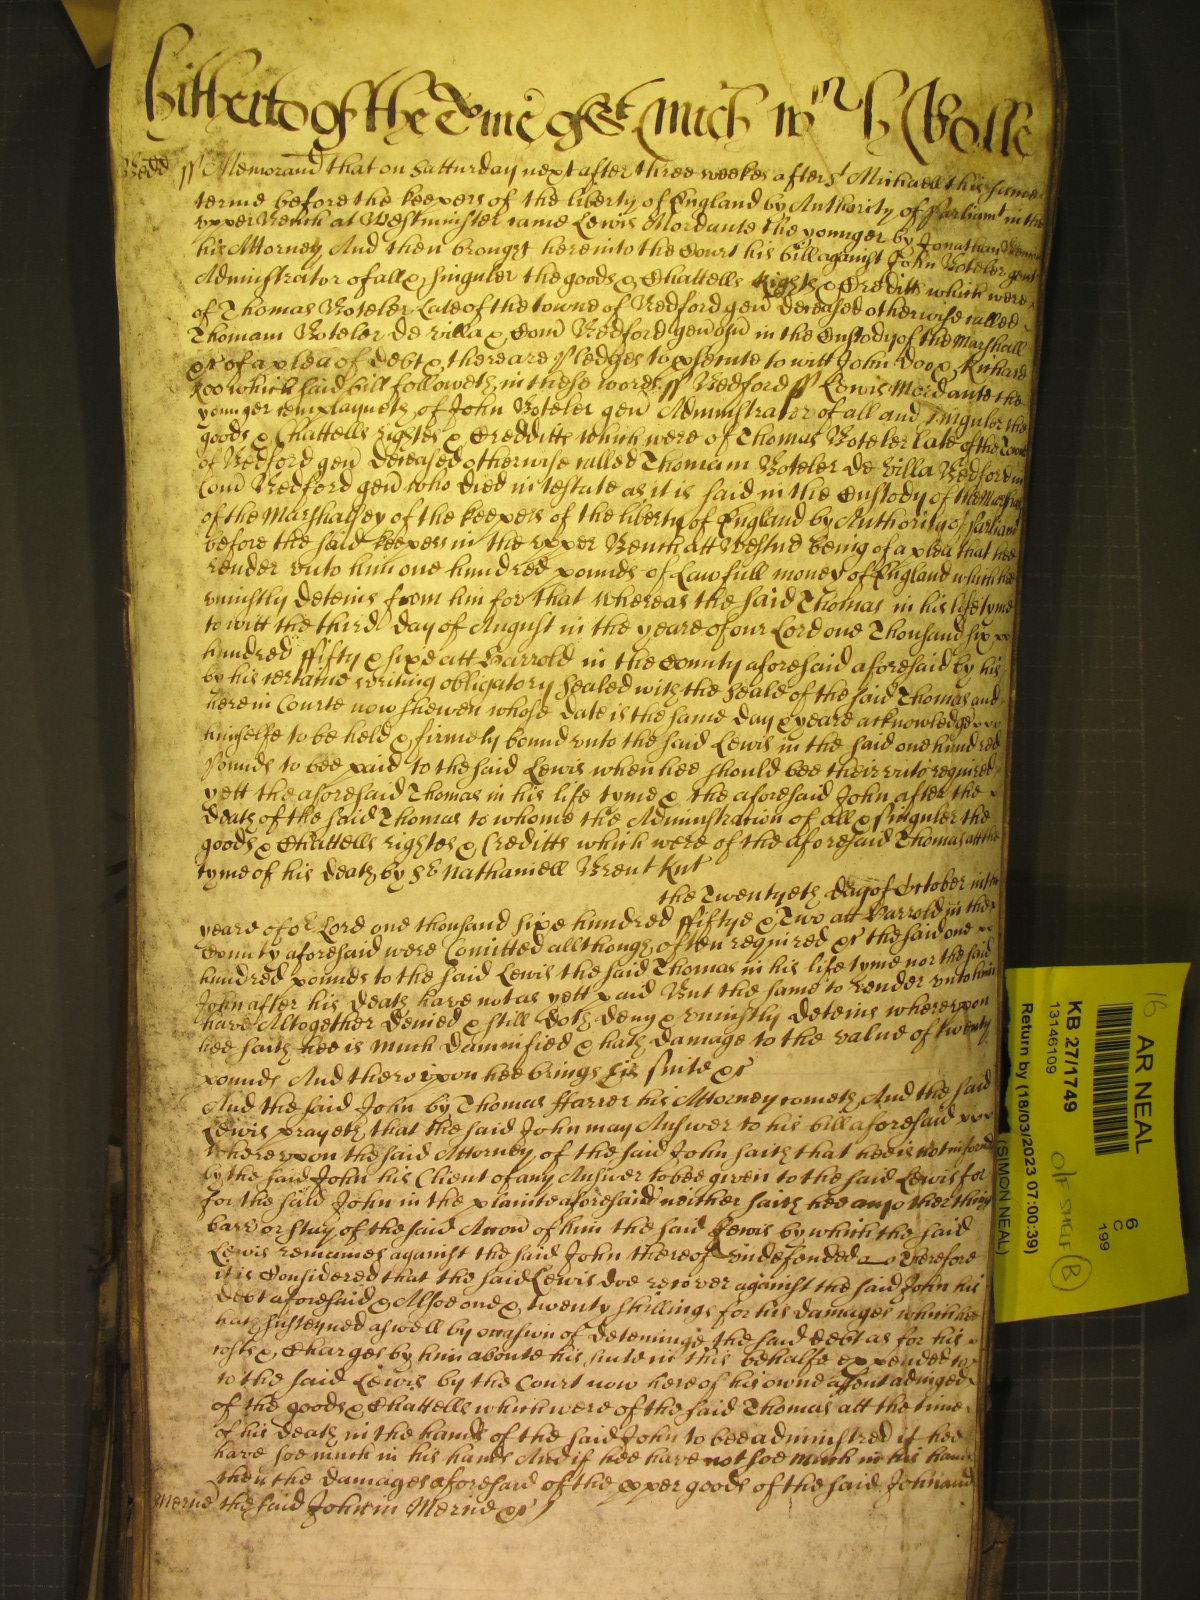 hitherto of the Tme of St Mich wth h Rolle
Bedd ss Memorand that on Satturday next after three weekes after St Michaell this same
terme before the keepers of the liberty of England by Authority of Parliamt in the
vpper Bench at Westminster came Lewis Mordante the younger by Jonathan
his Attorney And then brought here into the Court his bill against John Boteler gent
Administrator of all & singuler the goods & Chattells Rights & Creditts which were
of Thomas Boteler Late of the towne of Bedford gen deceased otherwise called
Thomam Boteler de villa & Com Bedford gen in the Custody of the Marshall
&c of a plea of debt & there are pledges to psecute to witt John Doo & Richard
Roo which said bill followeth in these words ss Bedford ss Lewis Mordante the
younger complayneth of John Boteler gen Administrator of all and singuler the
goods & Chattells rightes & Credditts which were of Thomas Boteler Late of the Towne
of Bedford gen deceased otherwise called Thomam Boteler de villa Bedford in
Com Bedford gen who died intestate as it is said in the Custody of the Marshall
of the Marshalsey of the keepers of the liberty of England by Authority of Parliamt
before the said keepers in the vpper Bench att Westmr being of a plea that hee
render vnto him one hundred pounds of Lawfull money of England which hee
vniustly deteins from him for that whereas the said Thomas in his life tyme
to witt the third day of August in the yeare of our Lord one Thousand six
hundred ffifty & sixe att Harrold in the County aforesaid aforesaid by his
by his certaine writing obligatory Sealed with the Seale of the said Thomas and
here in Courte now shewen whose date is the same day & yeare acknowledge
himselfe to be held & firmely bound vnto the said Lewis in the said one hundred
Pounds to bee paid to the said Lewis when hee should bee thereunto required
yett the aforesaid Thomas in his life tyme & the aforesaid John after the
death of the said Thomas to whome the Administration of all & singuler the
goods & Chattells rightes & Creditts which were of the aforesaid Thomas att the
tyme of his death by Sr Nathaniell Brent Knt
the Twentyeth day of October in the
yeare of or Lord one thousand sixe hundred ffiftye & Two att Harrold in the
County aforesaid were Comitted allthough often required &c the said one
hundred pounds to the said Lewis the said Thomas in his life tyme nor the said
John after his death have not as yett paid But the same to render vnto him
have Altogether denied & still doth deny & vniustly deteins wherevpon
hee saith hee is much damnified & hath damage to the value of twenty
pounds And therevpon hee brings his suite &c
And the said John by Thomas ffarrer his Attorney cometh And the said
Lewis prayeth that the said John may Answer to his bill aforesaid
Wherevpon the said Attorney of the said John saith that hee is not informed
by the said John his Client of any Answer to bee given to the said Lewis for
for the said John in the plainte aforesaid neither saith hee any other thing
barr or stay of the said Accon of him the said Lewis by which the said
Lewis remaines against the said John thereof vndefended Therefore
it is Considered that the said Lewis doe recover against the said John his
debt aforesaid & Allsoe one & twenty shillings for his damages which hee
hath susteyned aswell by occasion of deteininge the said debt as for his
costs & Charges by him aboute his suite in this behalfe expended
to the said Lewis by the Court now here of his owne assent adiudged
of the goods & Chattells which were of the said Thomas att the time
of his death in the hands of the said John to bee administred if hee
have soe much in his hands And if hee have not soe much in his hands
then the damages aforesaid of the pper goods of the said John and
Mercie the said John in Mercie &c
16 AR NEAL
KB 27/1749
13146109
Return by (18/03/2023 07:00:39)
(SIMON NEAL)
O/F SHELF B
6
C
199